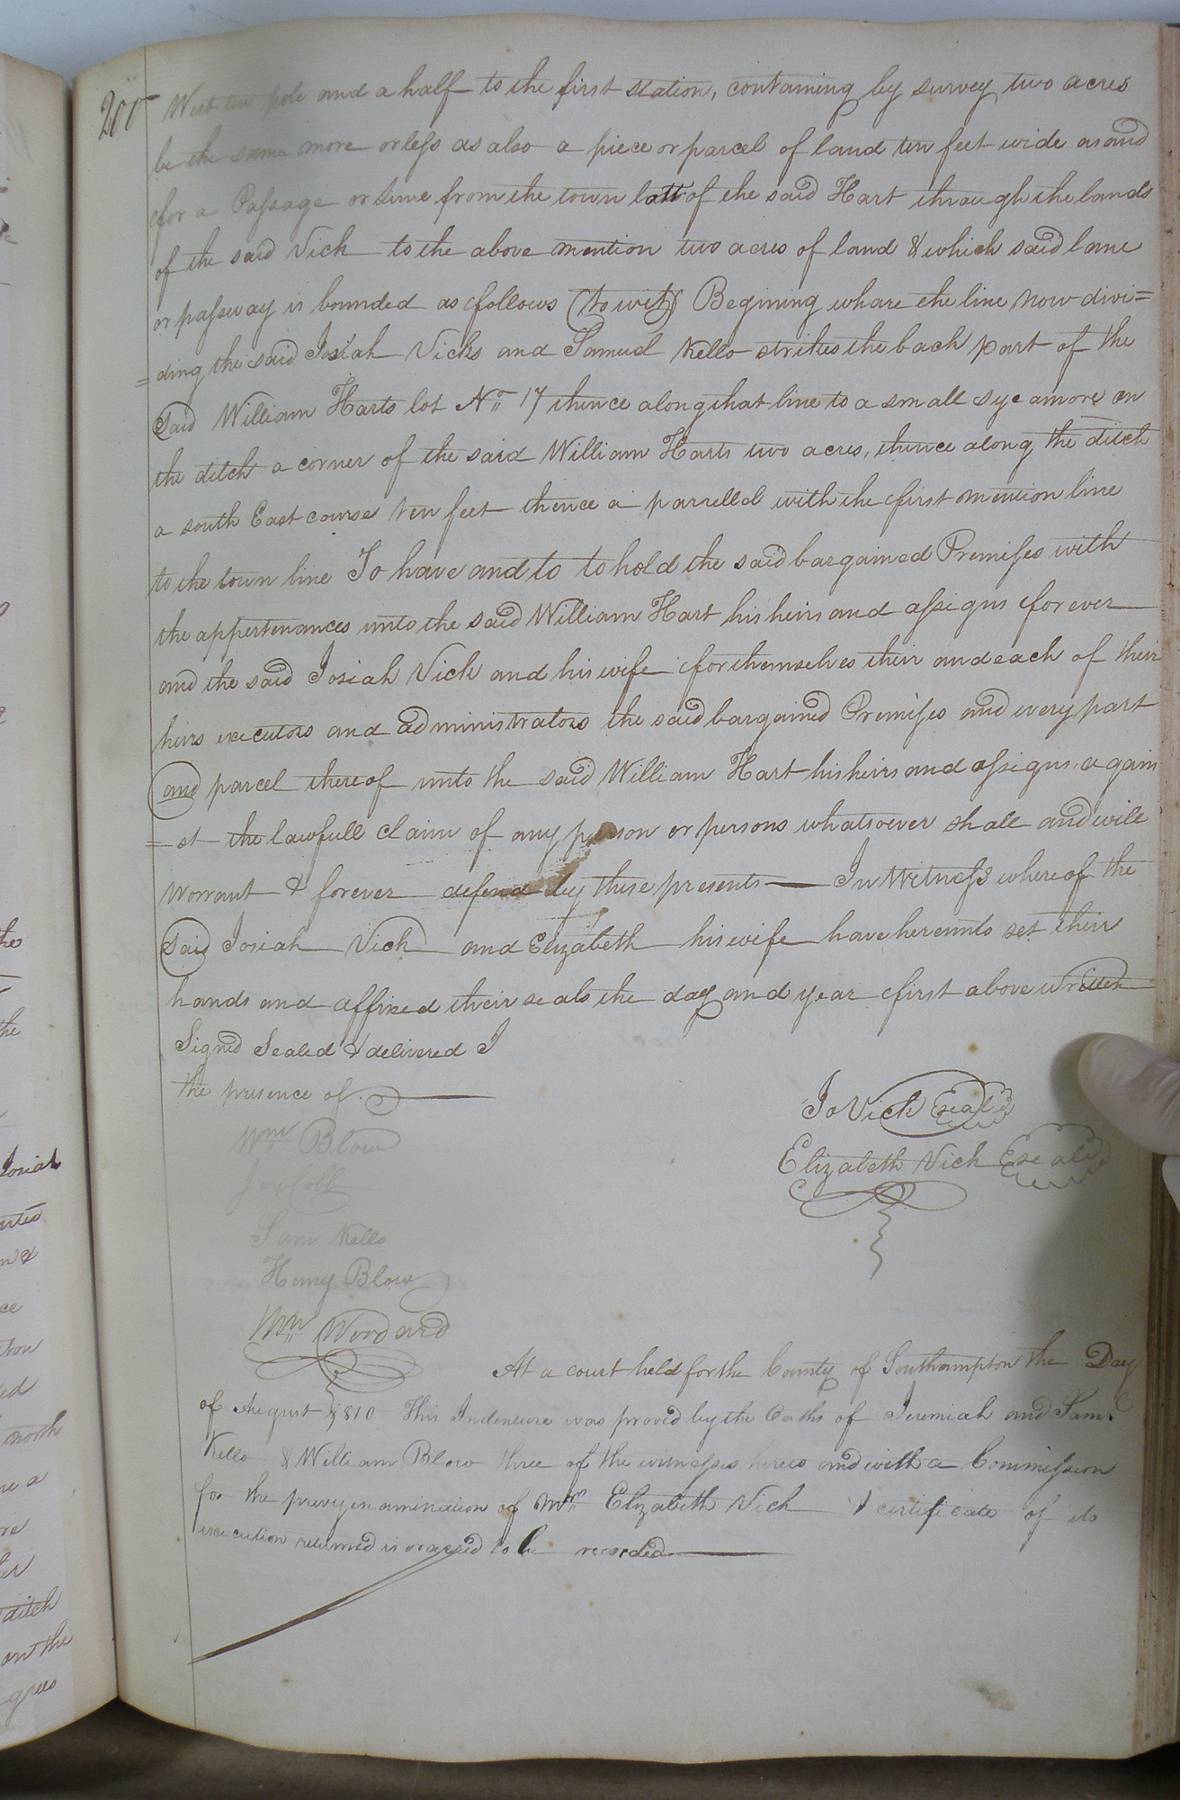 200
West ten pole and a half to the first station, containing by survey two acres
be the same more or less as also a piece or parcel of land ten feet wide as and
for a Passage or lane from the town lott of the said Hart through the lands
of the said Vick to the above mention two acres of land & which said lane
or passway is bounded as follows (to wit) Begining whare the line now divi=
=ding the said Josiah Vicks and Samuel Kello strikes the back part of the
Said William Harts lot No. 17 thence along that line to a small sycamore on
the ditch a corner of the said William Harts two acres, thence along the ditch
a south East course ten feet thence a parrellel with the first mention line
to the town line To have and to to hold the said bargained Premises with
the appertenances unto the said William Hart his heirs and assigns forever
and the said Josiah Vick and his wife for themselves their and each of their
heirs executors and administrators the said bargained Premises and every part
and parcel thereof unto the said William Hart his heirs and assigns again
=st the lawfull claim of any person or persons whatsoever shall and will
Warrant & forever defend by these presents — In Witness whereof the
Said Josiah Vick and Elizabeth his wife have hereunto set their
hands and affixed their seals the day and year first above written
Signed Sealed & delivered I
the presence of
Jo Vick (seal)
Wm Blow
Elizabeth Vick (seal)
Jer Cobb
Sam Kello
Henry Blow
Wm Woodard
At a court held for the County of Southampton the Day
of August 1810 This Indenture was proved by the Oaths of Jeremiah and Saml
Kello & William Blow three of the witnesses hereto and with a Commission
for the privy examination of Mrs Elizabeth Vick & certificate of its
execution returned is ordered to be recorded